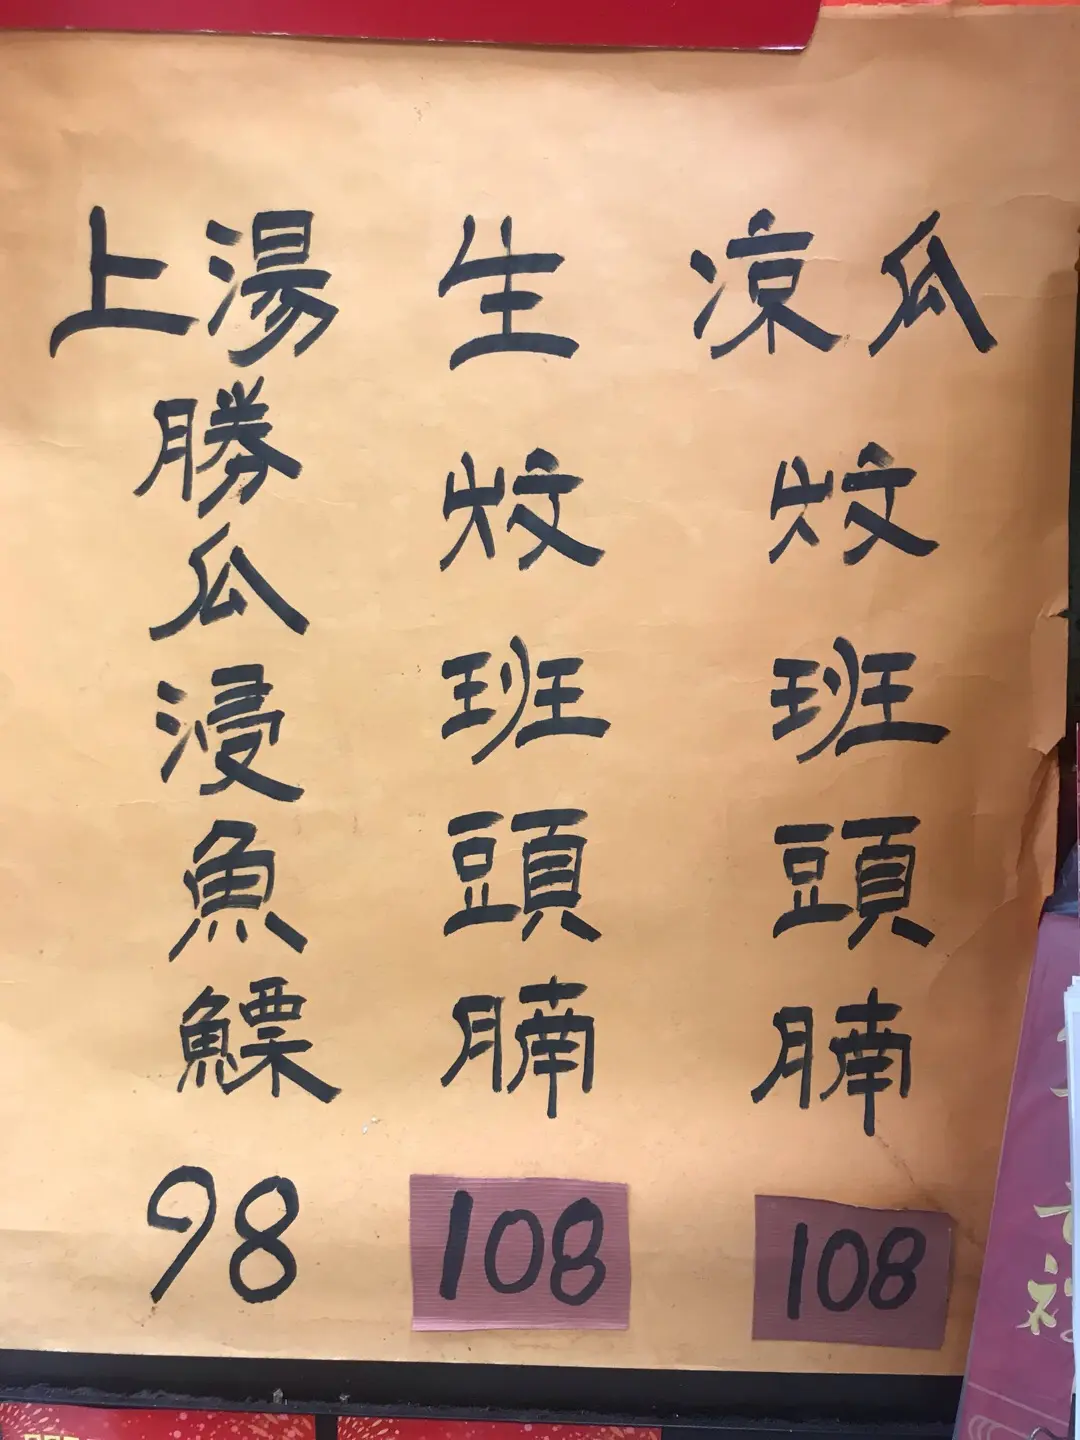 凉瓜炆班頭腩
108
生炆班頭腩
108
上湯勝瓜浸魚鰾
98